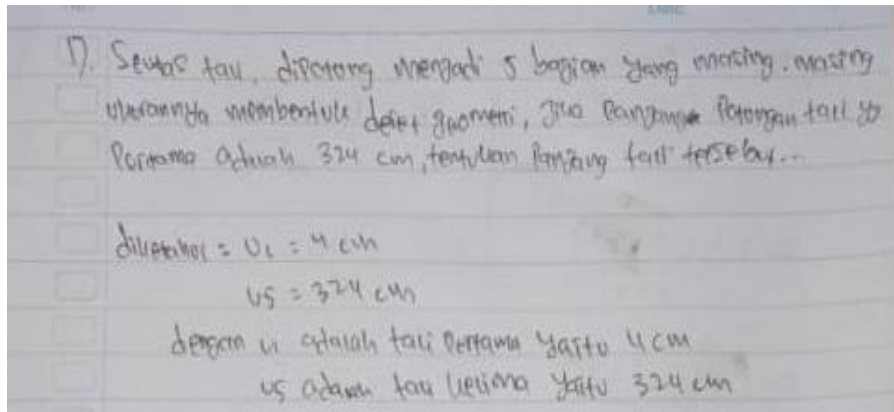 1). Seutas tali dipotong menjadi 5 bagian yang masing-masing
ukurannya membentuk deret geometri, jika panjang potongan tali yg
pertama adalah 324 cm, tentukan panjang tali tersebut...
diketahui = U1 = 4 cm
U5 = 324 cm
dengan u adalah tali pertama yaitu 4 cm
u5 adalah tali kelima yaitu 324 cm